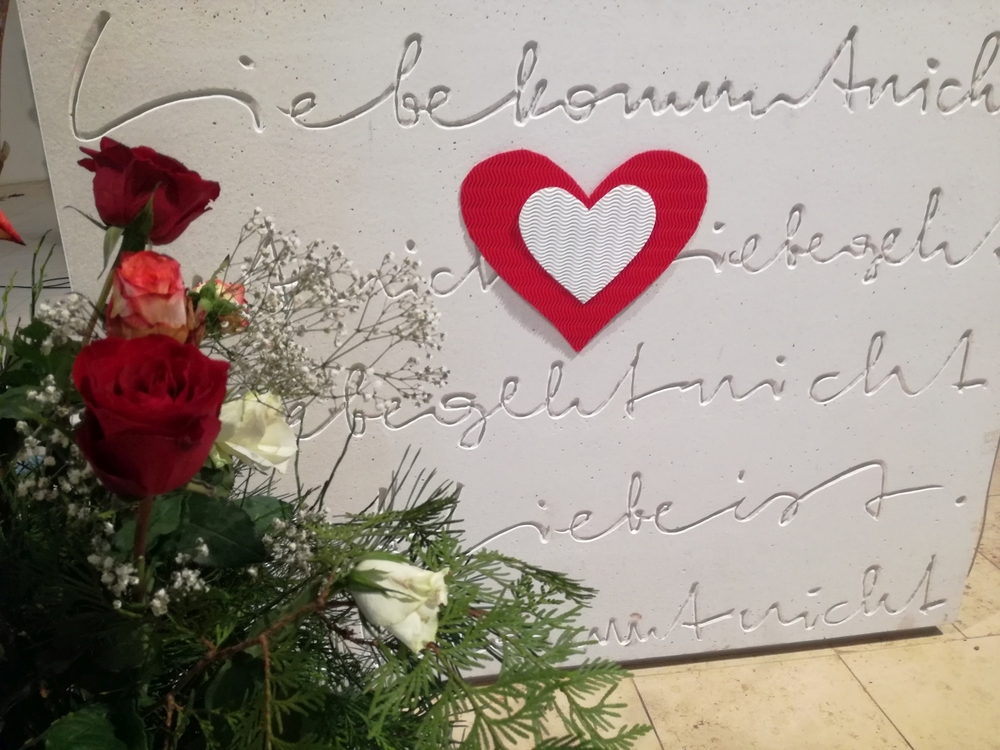 Liebe kommt nich
nich Liebe geht
ebe geht nicht
Liebe ist.
mmt nicht